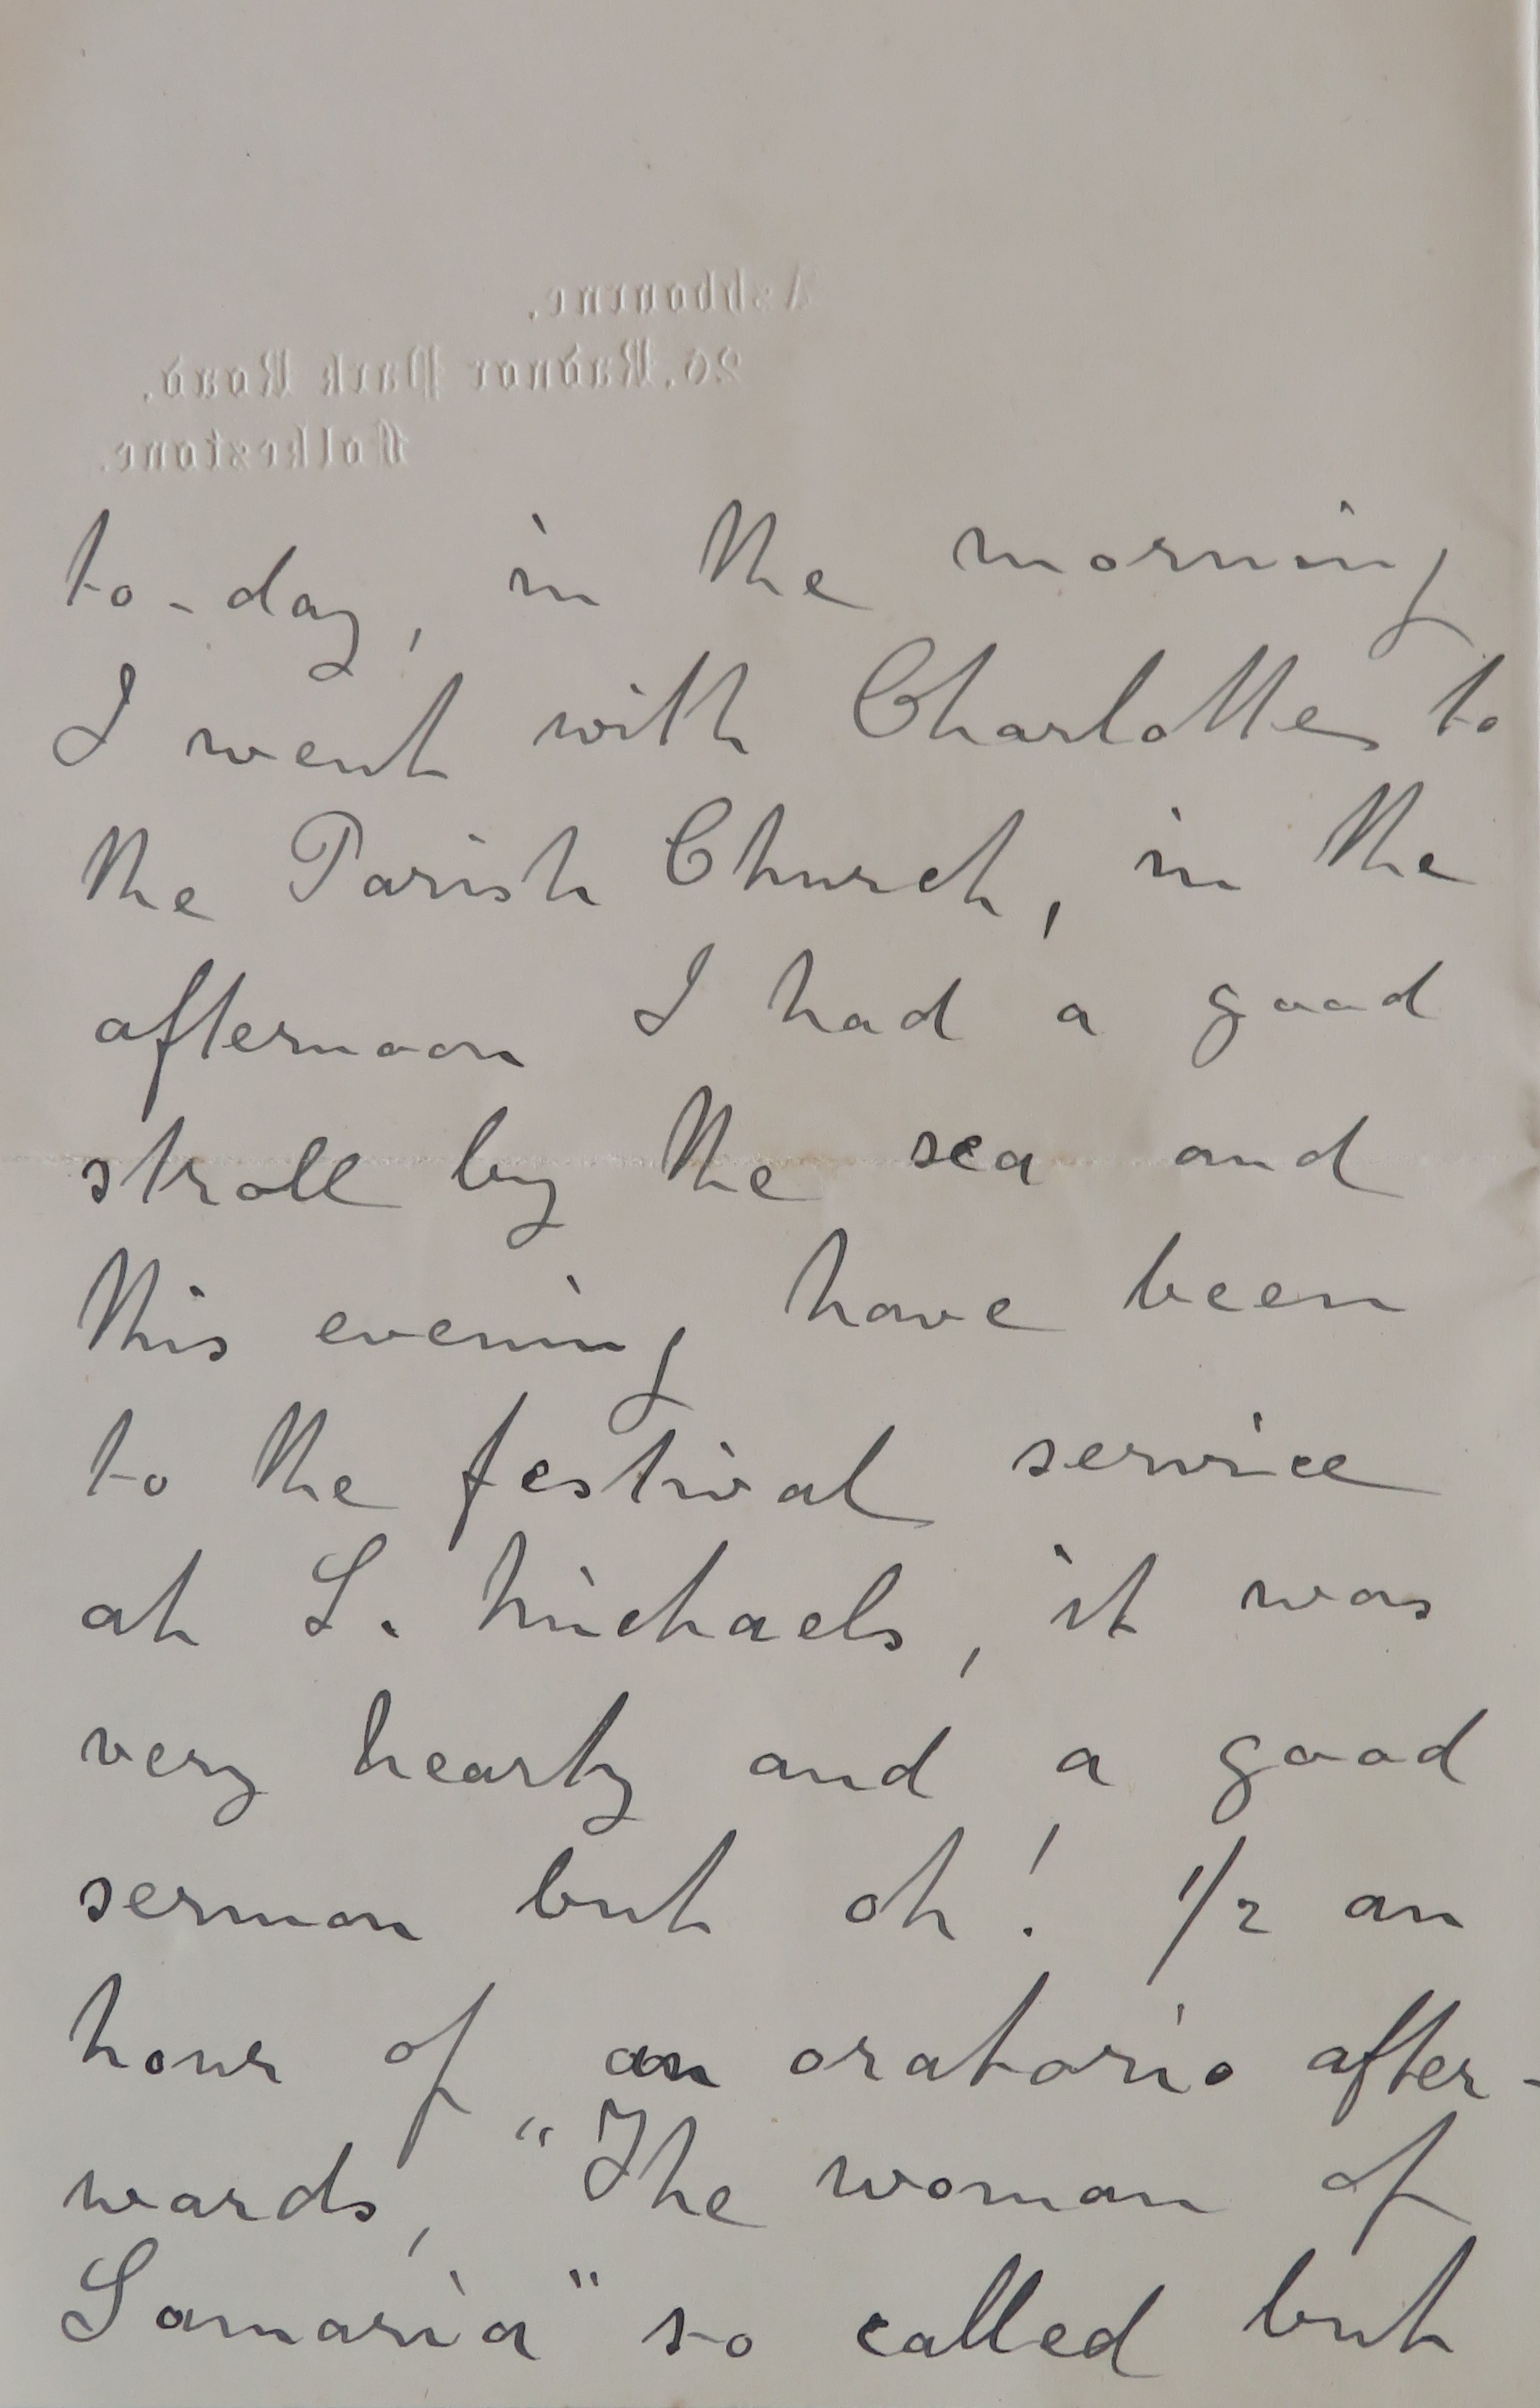 Ashbourne,
26, Radnor Park Road,
Folkestone.
to-day, in the morning
I went with Charlotte to
the Parish Church, in the
afternoon I had a good
stroll by the sea and
this evening have been
to the festival service
at S. Michaels, it was
very hearty and a good
sermon but oh! 1/2 an
hour of an oratorio after-
wards, "The woman of
Samaria" so called but